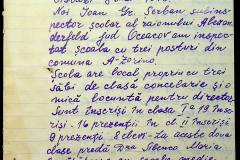 Noi Ioan Gr. Serban subins-
pector școlar al raionului Alexan-
derfeld jud Oceacov am inspec-
tat școala cu trei posturi din
comuna A-Zorino.
Școla are local propriu cu trei
săli de clasă concilarie și o
mică locuință pentru director
Sunt înscriși în clasa I-a 19 înscri-
și. 16 prezenți. În cl. II înscriși
9 prezenți 8 elevi. La aceste două
clase predă D-na Sibenco Maria